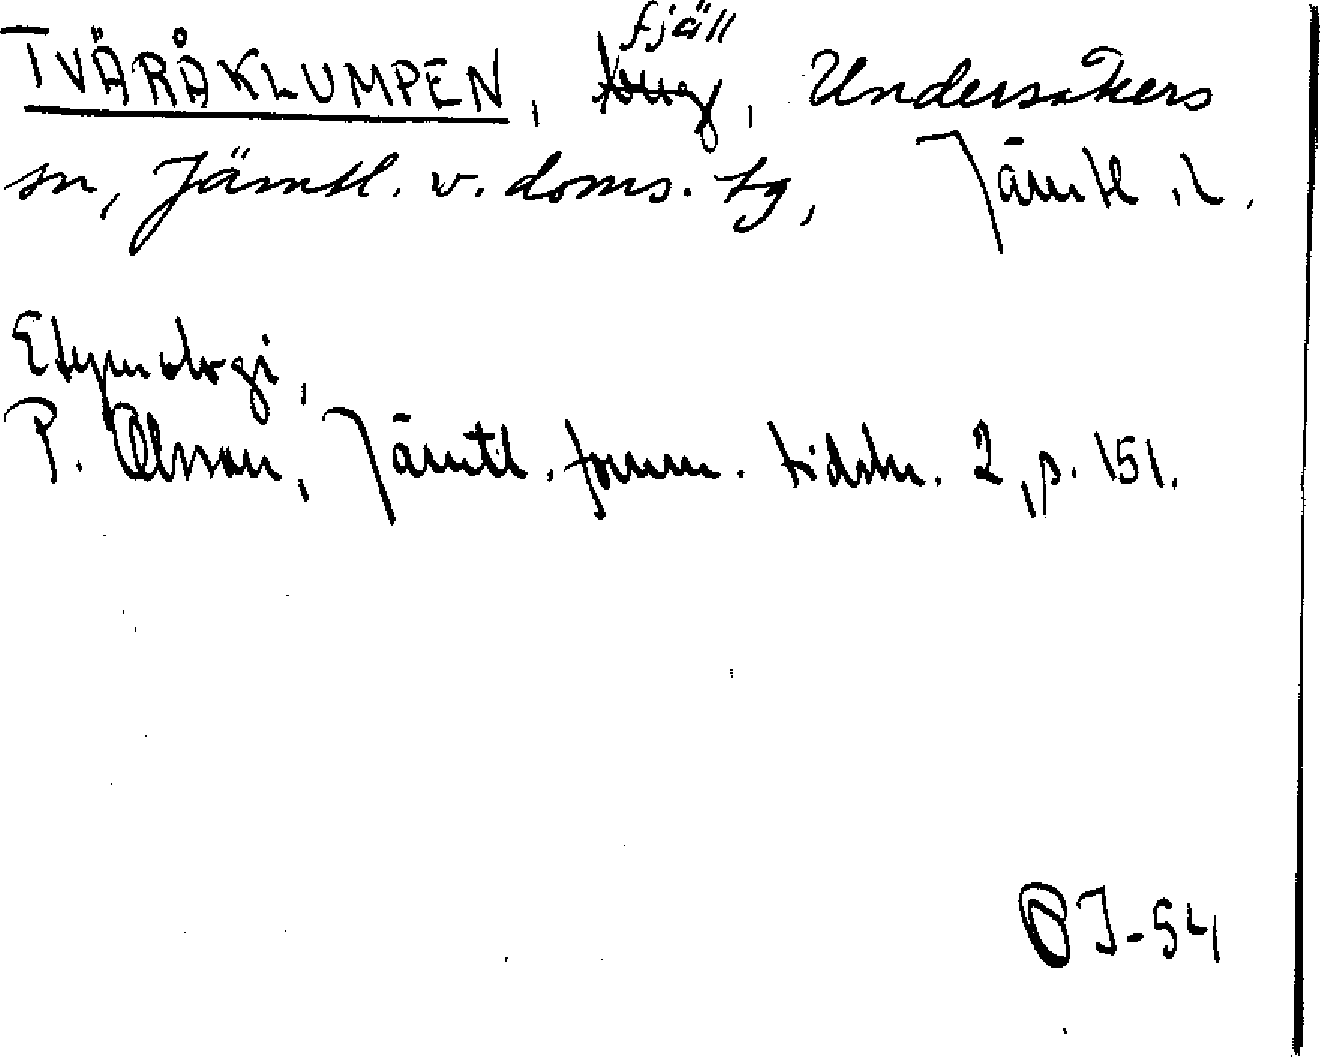 TVÄRÅKLUMPEN, fjäll, Undersåkers
sn, Jämtl. v. doms. tg, Jämtl. l.
Etymologi,
P. Olsson, Jämtl. fornm. tidskr. 2, p. 151.
OJ-54